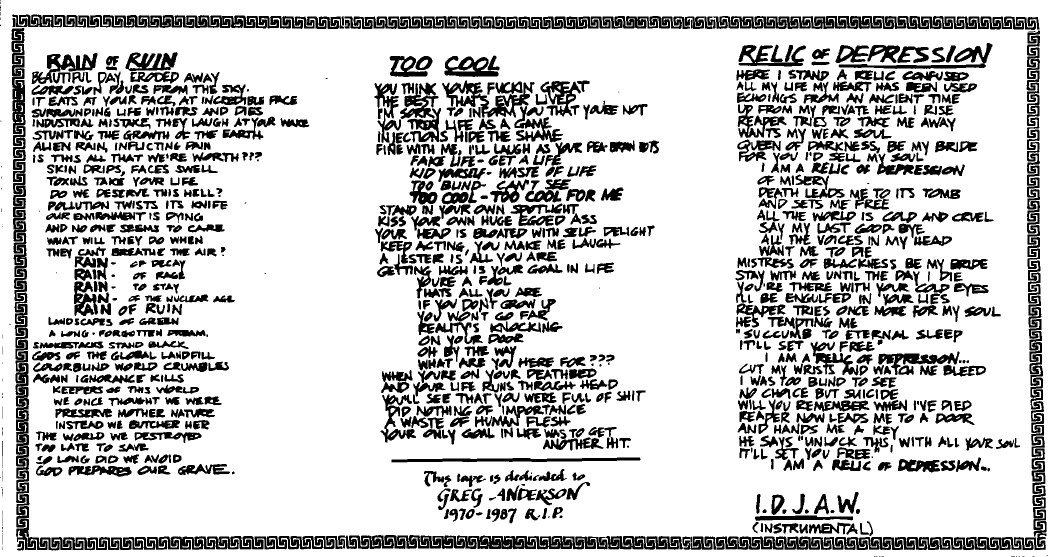 RAIN OF RUIN
BEAUTIFUL DAY, ERODED AWAY
CORROSION POURS FROM THE SKY.
IT EATS AT YOUR FACE, AT INCREDIBLE PACE
SURROUNDING LIFE WITHERS AND DIES
INDUSTRIAL MISTAKE, THEY LAUGH AT YOUR WAKE
STUNTING THE GROWTH OF THE EARTH
ALIEN RAIN, INFLICTING PAIN
IS THIS ALL THAT WE'RE WORTH???
SKIN DRIPS, FACES SWELL
TOXINS TAKE YOUR LIFE
DO WE DESERVE THIS HELL?
POLLUTION TWISTS ITS KNIFE
OUR ENVIRONMENT IS DYING
AND NO ONE SEEMS TO CARE
WHAT WILL THEY DO WHEN
THEY CAN'T BREATHE THE AIR?
RAIN - OF DECAY
RAIN - OF RAGE
RAIN - TO STAY
RAIN - OF THE NUCLEAR AGE
RAIN OF RUIN
LANDSCAPES OF GREEN
A LONG-FORGOTTEN DREAM.
SMOKESTACKS STAND BLACK
GODS OF THE GLOBAL LANDFILL
COLORBLIND WORLD CRUMBLES
AGAIN IGNORANCE KILLS
KEEPERS OF THIS WORLD
WE ONCE THOUGHT WE WERE
PRESERVE MOTHER NATURE
INSTEAD WE BUTCHER HER
THE WORLD WE DESTROYED
TOO LATE TO SAVE
SO LONG DID WE AVOID
GOD PREPARES OUR GRAVE..
TOO COOL
YOU THINK YOU'RE FUCKIN' GREAT
THE BEST THAT'S EVER LIVED
I'M SORRY TO INFORM YOU THAT YOU'RE NOT
YOU TREAT LIFE AS A GAME
INJECTIONS HIDE THE SHAME
FINE WITH ME, I'LL LAUGH AS YOUR PEA-BRAIN ROTS
FAKE LIFE - GET A LIFE
KID YOURSELF - WASTE OF LIFE
TOO BLIND - CAN'T SEE
TOO COOL - TOO COOL FOR ME
STAND IN YOUR OWN SPOTLIGHT
KISS YOUR OWN HUGE EGOED ASS
YOUR HEAD IS BLOATED WITH SELF-DELIGHT
KEEP ACTING, YOU MAKE ME LAUGH
A JESTER IS ALL YOU ARE
GETTING HIGH IS YOUR GOAL IN LIFE
YOU'RE A FOOL
THATS ALL YOU ARE
IF YOU DON'T GROW UP
YOU WON'T GO FAR
REALITY'S KNOCKING
ON YOUR DOOR
OH BY THE WAY
WHAT ARE YOU HERE FOR???
WHEN YOU'RE ON YOUR DEATHBED
AND YOUR LIFE RUNS THROUGH HEAD
YOU'LL SEE THAT YOU WERE FULL OF SHIT
DID NOTHING OF IMPORTANCE
A WASTE OF HUMAN FLESH
YOUR ONLY GOAL IN LIFE WAS TO GET
ANOTHER HIT.
This tape is dedicated to
GREG ANDERSON
1970-1987 R.I.P.
RELIC OF DEPRESSION
HERE I STAND A RELIC CONFUSED
ALL MY LIFE MY HEART HAS BEEN USED
ECHOINGS FROM AN ANCIENT TIME
UP FROM MY PRIVATE HELL I RISE
REAPER TRIES TO TAKE ME AWAY
WANTS MY WEAK SOUL
QUEEN OF DARKNESS, BE MY BRIDE
FOR YOU I'D SELL MY SOUL
I AM A RELIC OF DEPRESSION
OF MISERY
DEATH LEADS ME TO IT'S TOMB
AND SETS ME FREE
ALL THE WORLD IS COLD AND CRUEL
SAY MY LAST GOOD-BYE
ALL THE VOICES IN MY HEAD
WANT ME TO DIE
MISTRESS OF BLACKNESS BE MY BRIDE
STAY WITH ME UNTIL THE DAY I DIE
YOU'RE THERE WITH YOUR COLD EYES
I'LL BE ENGULFED IN YOUR LIES
REAPER TRIES ONCE MORE FOR MY SOUL
HE'S TEMPTING ME
"SUCCUMB TO ETERNAL SLEEP
IT'LL SET YOU FREE"
I AM A RELIC OF DEPRESSION...
CUT MY WRISTS AND WATCH ME BLEED
I WAS TOO BLIND TO SEE
NO CHOICE BUT SUICIDE
WILL YOU REMEMBER WHEN I'VE DIED
REAPER NOW LEADS ME TO A DOOR
AND HANDS ME A KEY
HE SAYS "UNLOCK THIS, WITH ALL YOUR SOUL
IT'LL SET YOU FREE."
I AM A RELIC OF DEPRESSION...
I.D.J.A.W.
(INSTRUMENTAL)